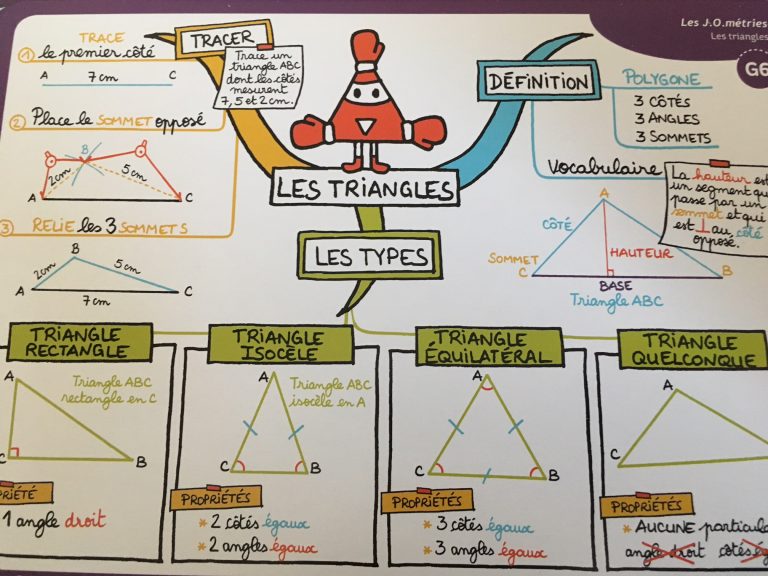 Les J.O.métries
Les triangles
G6
TRACER
Trace un
triangle ABC
dont les côtés
mesurent
7, 5 et 2 cm.
TRACE
1 le premier côté
A 7cm C
2 Place le SOMMET opposé
B
2cm 5cm
A C
3 RELIE les 3 SOMMETS
B
2cm 5cm
A 7cm C
LES TRIANGLES
DÉFINITION
POLYGONE
3 CÔTÉS
3 ANGLES
3 SOMMETS
Vocabulaire
La hauteur est
un segment qu
passe par un
sommet et qui
est ⊥ au côté
opposé.
A
CÔTÉ
HAUTEUR
SOMMET
C B
BASE
Triangle ABC
LES TYPES
TRIANGLE
RECTANGLE
A
Triangle ABC
rectangle en C
C B
PRIÉTÉ
1 angle droit
TRIANGLE
ISOCÈLE
A
Triangle ABC
isocèle en A
C B
PROPRIÉTÉS
* 2 côtés égaux
* 2 angles égaux
TRIANGLE
ÉQUILATÉRAL
A
C B
PROPRIÉTÉS
* 3 côtés égaux
* 3 angles égaux
TRIANGLE
QUELCONQUE
A
C
PROPRIÉTÉS
* AUCUNE particula
angle droit côtés ég